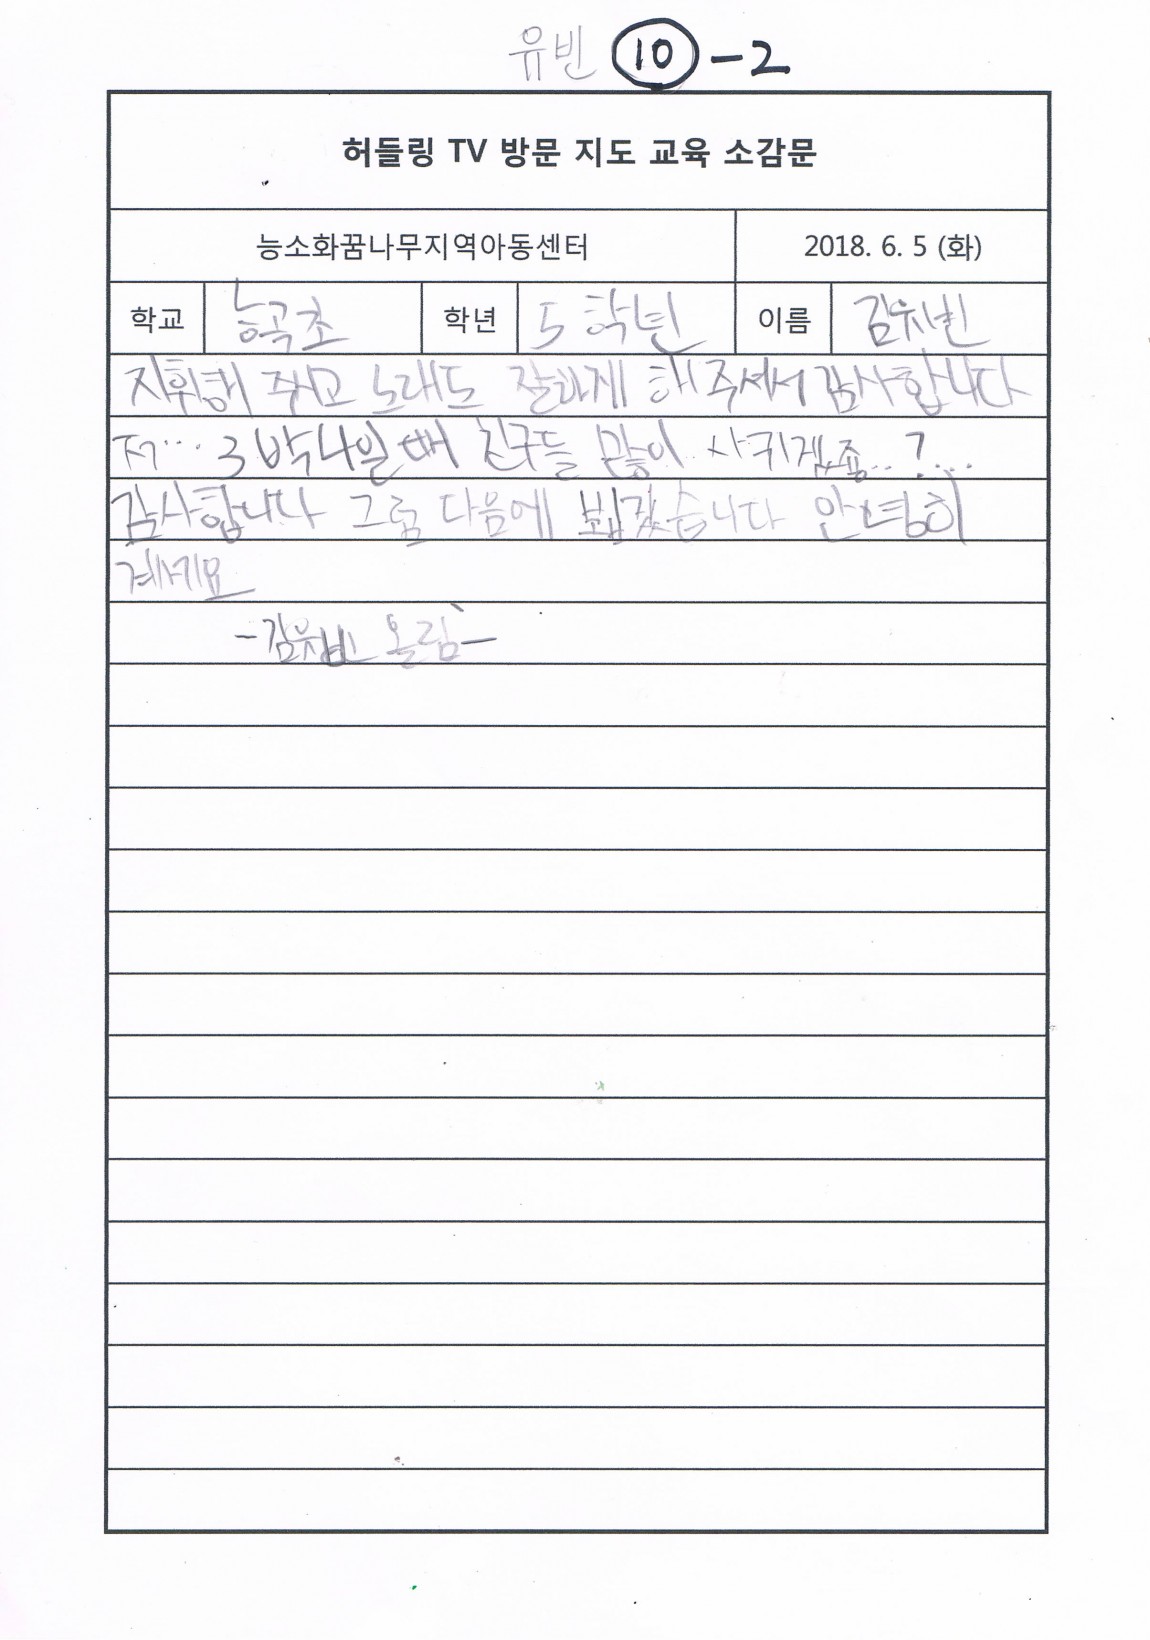 유빈 ⑩-2
허들링 TV 방문 지도 교육 소감문
능소화꿈나무지역아동센터 2018. 6. 5 (화)
학교 능곡초 학년 5학년 이름 김유빈
지휘해 주시고 노래도 잘하게 해주셔서 감사합니다
저... 3박4일 때 친구들 많이 사귀겠죠..?...
감사합니다 그럼 다음에 뵙겠습니다 안녕히
계세요
-김유빈 올림-